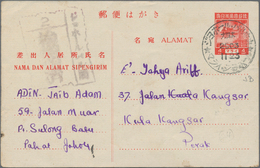 郵便はがき
差出人居所氏名
NAMA DAN ALAMAT SIPENGIRIM
名宛 ALAMAT
ADIN. Jaib Adam
59. Jalan Muar
Pt. Sulong Batu
Pahat, Johore
E' Yahya Ariff
37 Jalan Kuala Kangsar
Kuala Kangsar
Perak